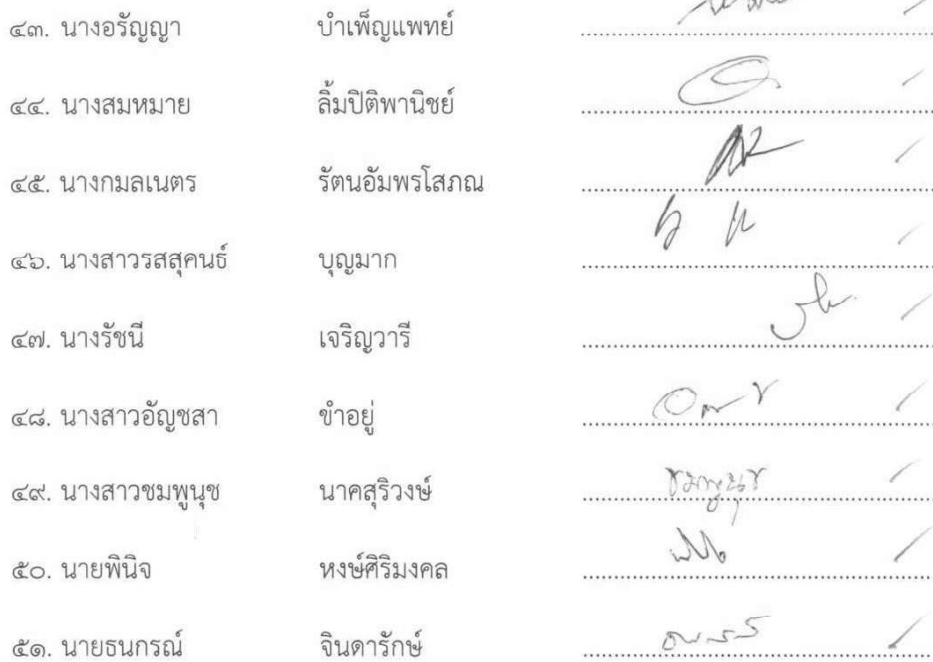 ๔๓. นางอรัญญา บำเพ็ญแพทย์
๔๔. นางสมหมาย ลิ้มปิติพานิชย์
๔๕. นางกมลเนตร รัตนอัมพรโสภณ
๔๖. นางสาวรสสุคนธ์ บุญมาก
๔๗. นางรัชนี เจริญวารี
๔๘. นางสาวอัญชสา ขำอยู่
๔๙. นางสาวชมพูนุช นาคสุริวงษ์ ชมพูนุช
๕๐. นายพินิจ หงษ์ศิริมงคล
๕๑. นายธนกรณ์ จินดารักษ์